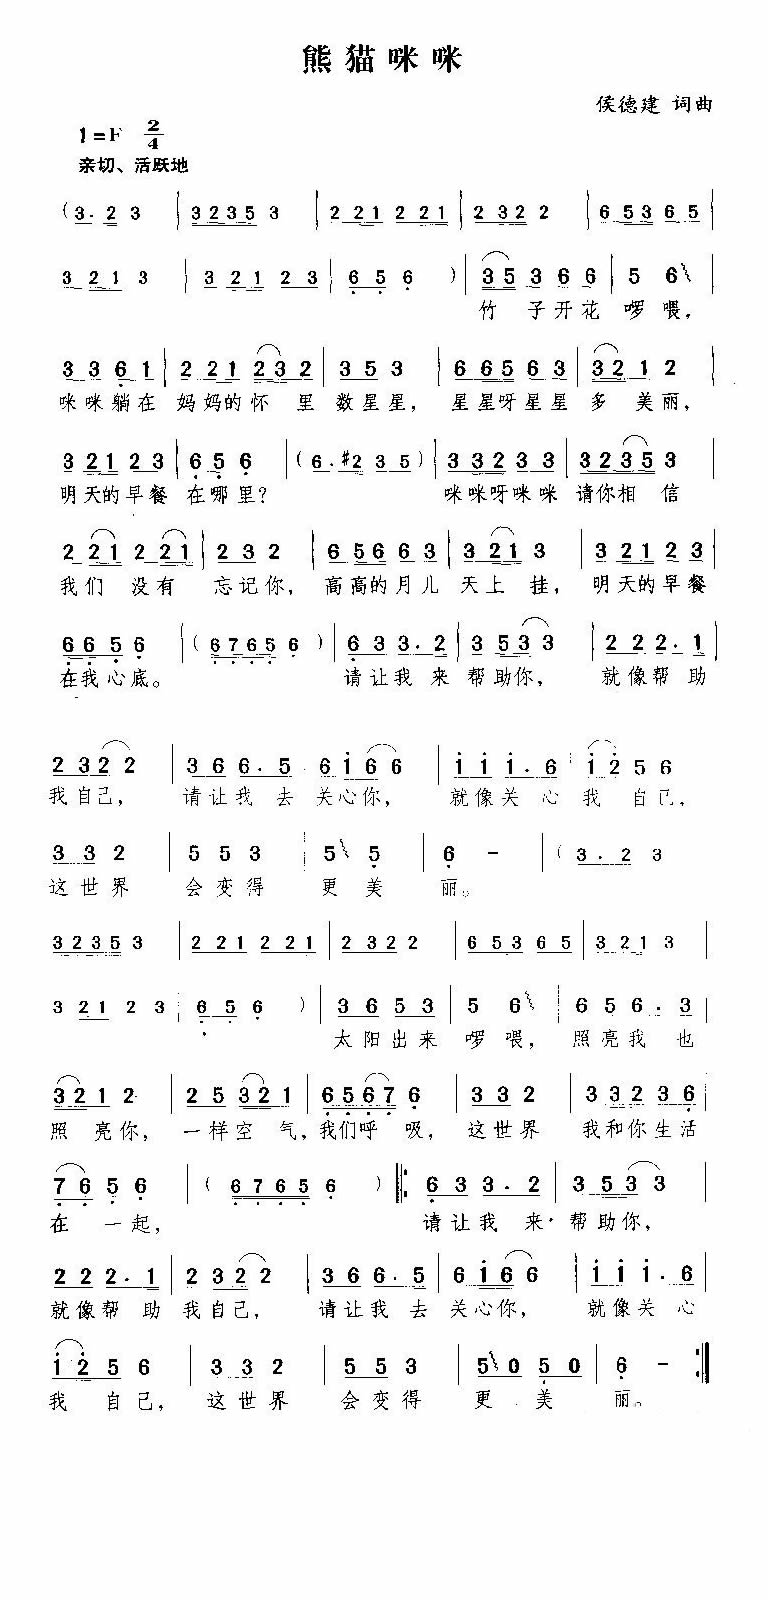 熊猫咪咪
侯德建 词曲
1=F 2/4
亲切、活跃地
(3. 2 3 | 3 2 3 5 3 | 2 2 1 2 2 1 | 2 3 2 2 | 6 5 3 6 5 |
3 2 1 3 | 3 2 1 2 3 | 6 5 6 ) | 3 5 3 6 6 | 5 6 |
竹 子开花 啰 喂,
3 3 6 1 | 2 2 1 2 3 2 | 3 5 3 | 6 6 5 6 3 | 3 2 1 2 |
咪咪躺在 妈妈的怀 里 数星星, 星星呀星星 多 美丽,
3 2 1 2 3 | 6 5 6 | (6. #2 3 5) | 3 3 2 3 3 | 3 2 3 5 3 |
明天的早餐 在哪里? 咪咪呀咪咪 请你相 信
2 2 1 2 2 1 | 2 3 2 | 6 5 6 6 3 | 3 2 1 3 | 3 2 1 2 3 |
我们 没有 忘记你, 高高的月儿 天上 挂, 明天的早餐
6 6 5 6 | (6 7 6 5 6) | 6 3 3. 2 | 3 5 3 3 | 2 2 2. 1 |
在我心底。 请让我 来 帮助你, 就像帮 助
2 3 2 2 | 3 6 6. 5 | 6 1 6 6 | 1 1 1. 6 | 1 2 5 6 |
我自己, 请让我 去 关心你, 就像关 心 我 自己,
3 3 2 | 5 5 3 | 5 5 | 6 - | (3. 2 3
这世界 会变得 更美 丽。
3 2 3 5 3 | 2 2 1 2 2 1 | 2 3 2 2 | 6 5 3 6 5 | 3 2 1 3 |
3 2 1 2 3 | 6 5 6 ) | 3 6 5 3 | 5 6 | 6 5 6. 3 |
太阳出来 啰 喂, 照亮我 也
3 2 1 2 | 2 5 3 2 1 | 6 5 6 7 6 | 3 3 2 | 3 3 2 3 6 |
照 亮你, 一样空 气,我们呼 吸, 这世界 我和你生活
7 6 5 6 | (6 7 6 5 6 ) |: 6 3 3. 2 | 3 5 3 3 |
在 一起, 请让我 来 帮助你,
2 2 2. 1 | 2 3 2 2 | 3 6 6. 5 | 6 1 6 6 | 1 1 1. 6 |
就像帮 助 我自己, 请让我 去 关心你, 就像关 心
1 2 5 6 | 3 3 2 | 5 5 3 | 5 0 5 0 | 6 - :|
我 自己, 这世界 会变得 更 美 丽。